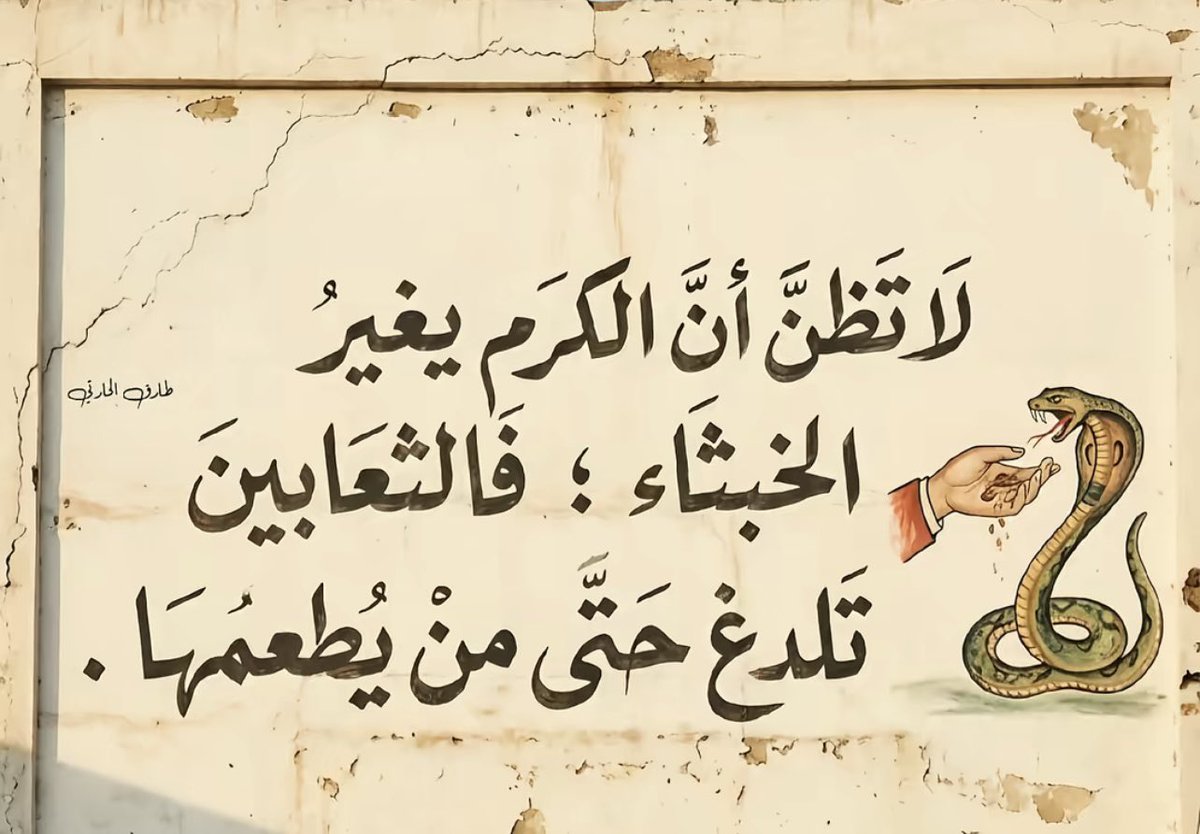 لَا تَظنَّ أنَّ الكرَم يغيرُ
طارق الحارثي
الخبثَاء ؛ فَالثعَابينَ
تَلدغ حَتَّى منْ يُطعمُهَا .